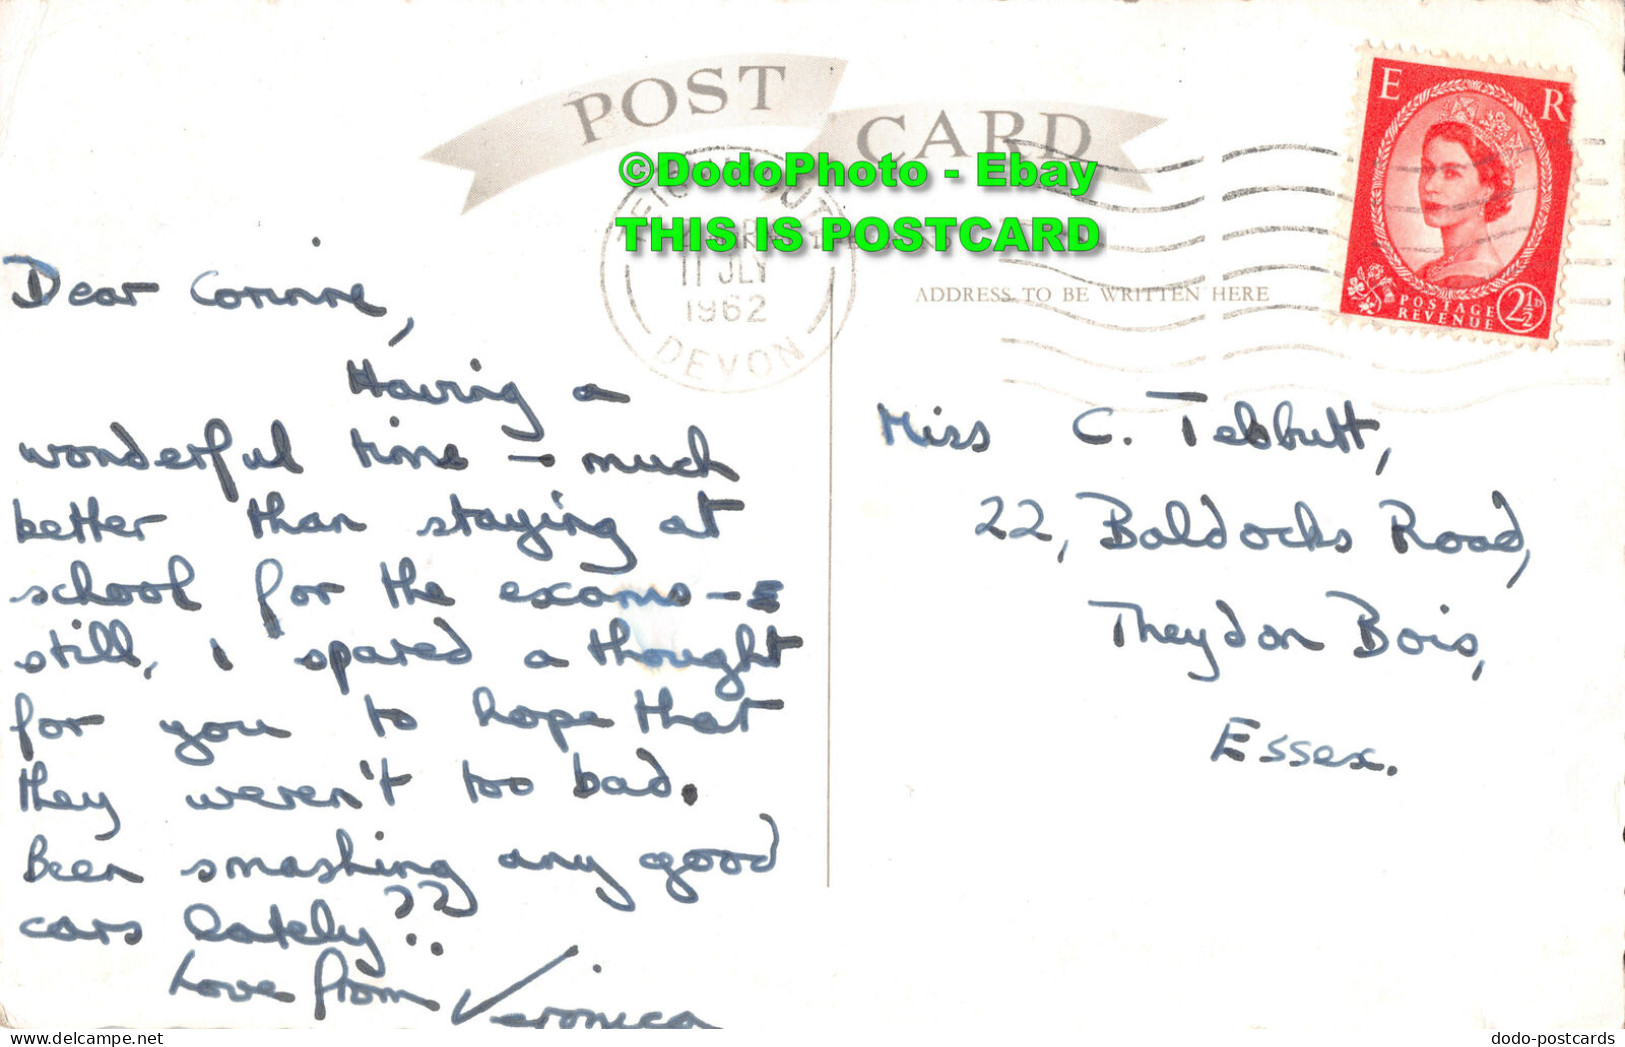 POST CARD
©DodoPhoto - Ebay
THIS IS POSTCARD
11 JLY
1962
DEVON
ADDRESS TO BE WRITTEN HERE
E R
POSTAGE
REVENUE
2½D
Dear Corinne,
Having a
wonderful time - much
better than staying at
school for the exams -
still, I spared a thought
for you to hope that
they weren't too bad.
Been smashing any good
cars lately??
Love from Veronica
Miss C. Tebbutt,
22, Baldocks Road,
Theydon Bois,
Essex.
dodo-postcards